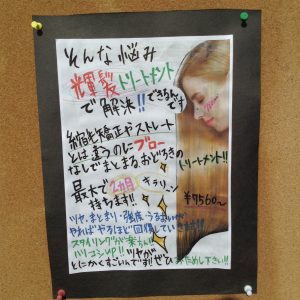 そんな悩み
輝髪トリートメント
で解決!!できるんです
縮毛矯正やストレート
とは違うのし ブロー
なしでまとまるおどろきの
トリートメント!!
最大で2ヵ月 キラリーン
持ちます!! ¥7560~
ツヤ、まとまり・強度、うるおい
やればやるほど回復していきます!!
スタイリングが楽ちん!!
ハリコシUP!! ツヤが
とにかくすごいんです!!ぜひ ためし下さい!!